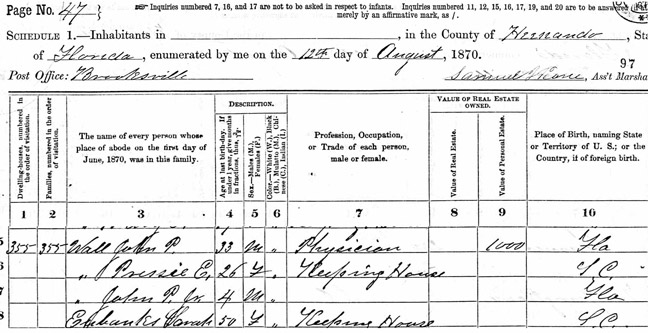 Page No. 47
Inquiries numbered 7, 16, and 17 are not to be asked in respect to infants. Inquiries numbered 11, 12, 15, 16, 17, 19, and 20 are to be answered
merely by an affirmative mark, as /.
SCHEDULE 1.—Inhabitants in , in the County of Hernando, Sta
of Florida, enumerated by me on the 12th day of August, 1870.
97
Post Office: Brooksville Samuel , Ass't Marsha
DESCRIPTION. VALUE OF REAL ESTATE OWNED.
Dwelling-houses, numbered in the order of visitation.
Families, numbered in the order of visitation.
The name of every person whose place of abode on the first day of June, 1870, was in this family.
Age at last birth-day. If under 1 year, give months in fractions, thus,
Sex.—Males (M.), Females (F.)
Color.—White (W.), Black (B.), Mulatto (M.), Chinese (C.), Indian (I.)
Profession, Occupation, or Trade of each person, male or female.
Value of Real Estate.
Value of Personal Estate.
Place of Birth, naming State or Territory of U. S.; or the Country, if of foreign birth.
1 2 3 4 5 6 7 8 9 10
5 355 355 Wall John P. 33 M " Physician 1000 Fla
6 " Pressie E. 26 F " Keeping House S C.
7 " John P. Jr. 4 M " Fla
8 Eubanks Sarah 50 F " Keeping House S.C.